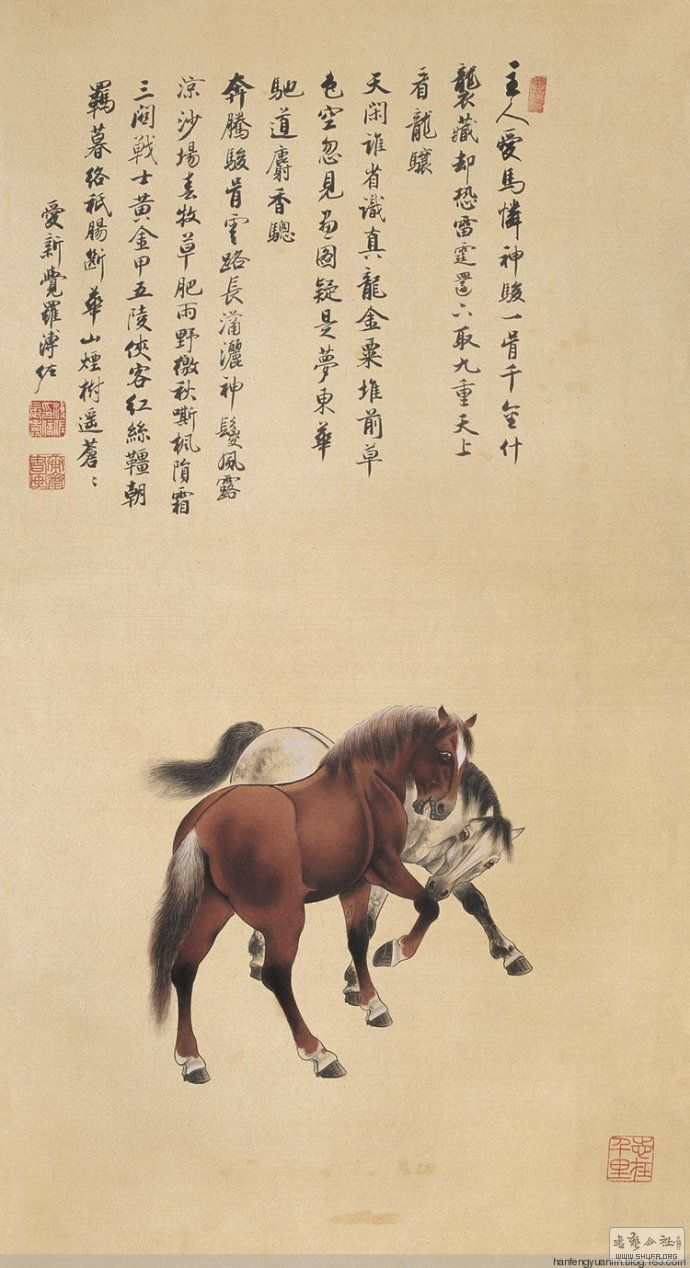 主人愛馬憐神駿一骨千金什
襲藏却恐雷霆還下取九重天上
看龍驤
天閑誰省識真龍金粟堆前草
色空忽見畫圖疑是夢東華
馳道麝香驄
奔騰駿骨雲路長瀟灑神鬘風露
涼沙場春牧草肥雨野橄秋嘶楓隕霜
三関戰士黃金甲五陵俠客紅絲韁朝
羈暮絡祇腸斷華山煙樹遥蒼〻
愛新覺羅溥佐
志在千里
書藝公社
WWW.SHUFA.ORG
hanfengyuanlin.blog.163.com